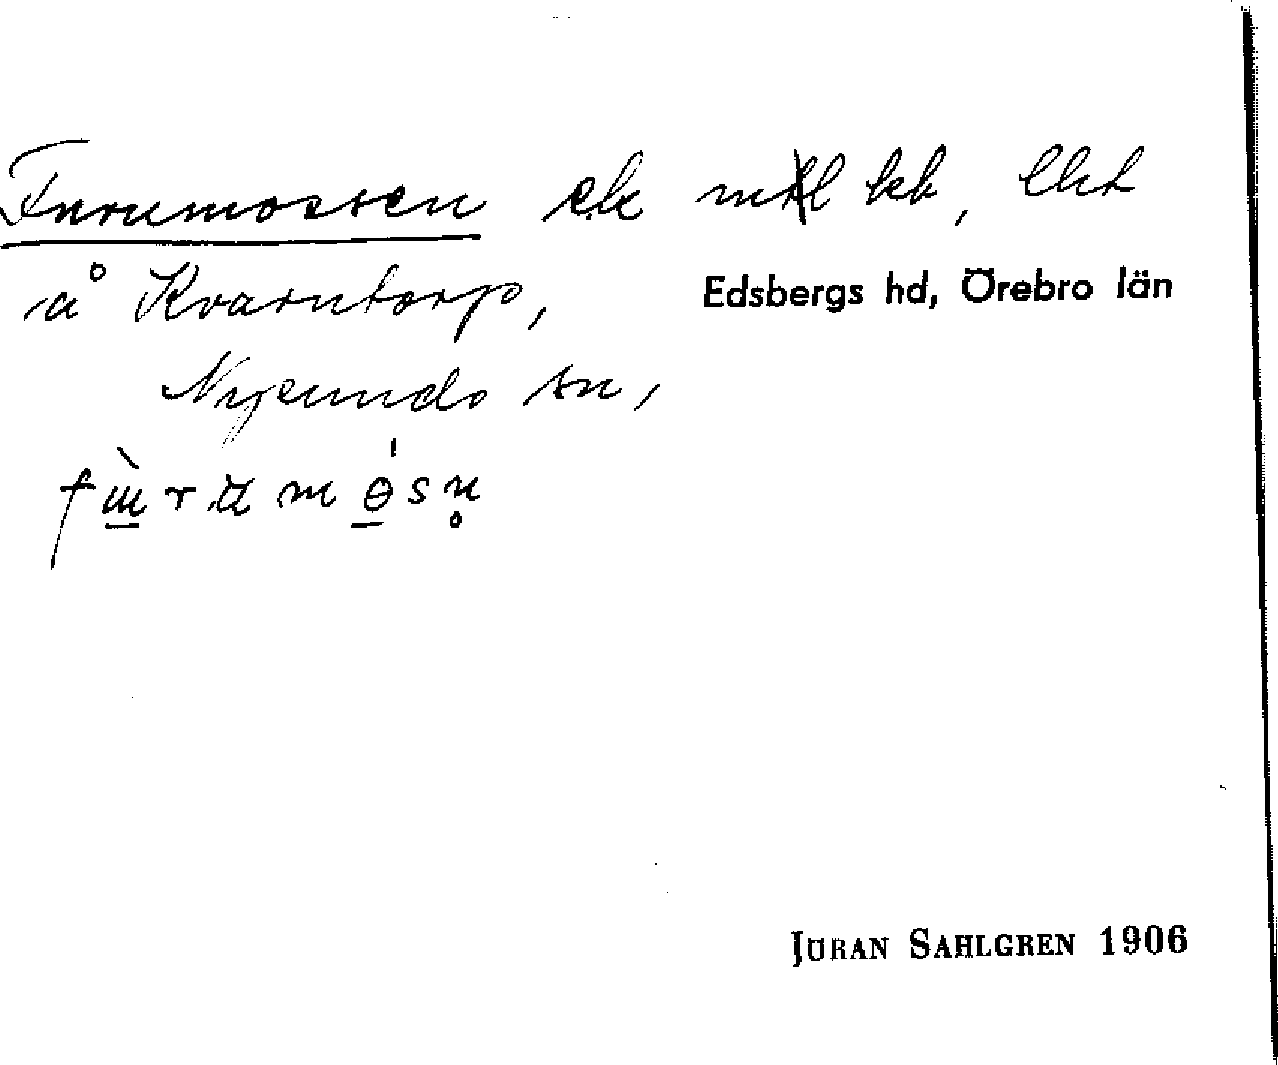 Furumossen ek ml kb, lht
å Kvarntorp, Edsbergs hd, Örebro län
Nysundo sn,
JÖRAN SAHLGREN 1906